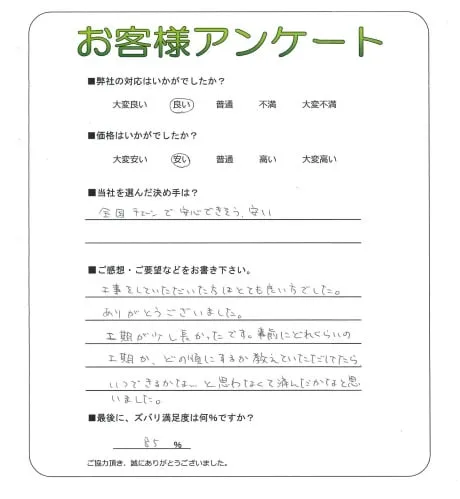 お客様アンケート
■弊社の対応はいかがでしたか？
大変良い 良い 普通 不満 大変不満
■価格はいかがでしたか？
大変安い 安い 普通 高い 大変高い
■当社を選んだ決め手は？
全国チェーンで安心できそう、安い
■ご感想・ご要望などをお書き下さい。
工事をしていただいた方はとても良い方でした。
ありがとうございました。
工期が少し長かったです。事前にどれくらいの
工期か、どの様にするか教えていただけてたら
いつできるかな～と思わなくて済んだかなと思
いました。
■最後に、ズバリ満足度は何%ですか？
85 %
ご協力頂き、誠にありがとうございました。